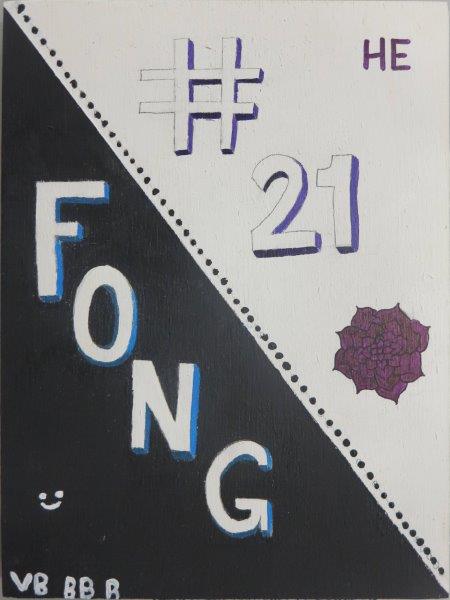 HE
#
21
FONG
VB BB B